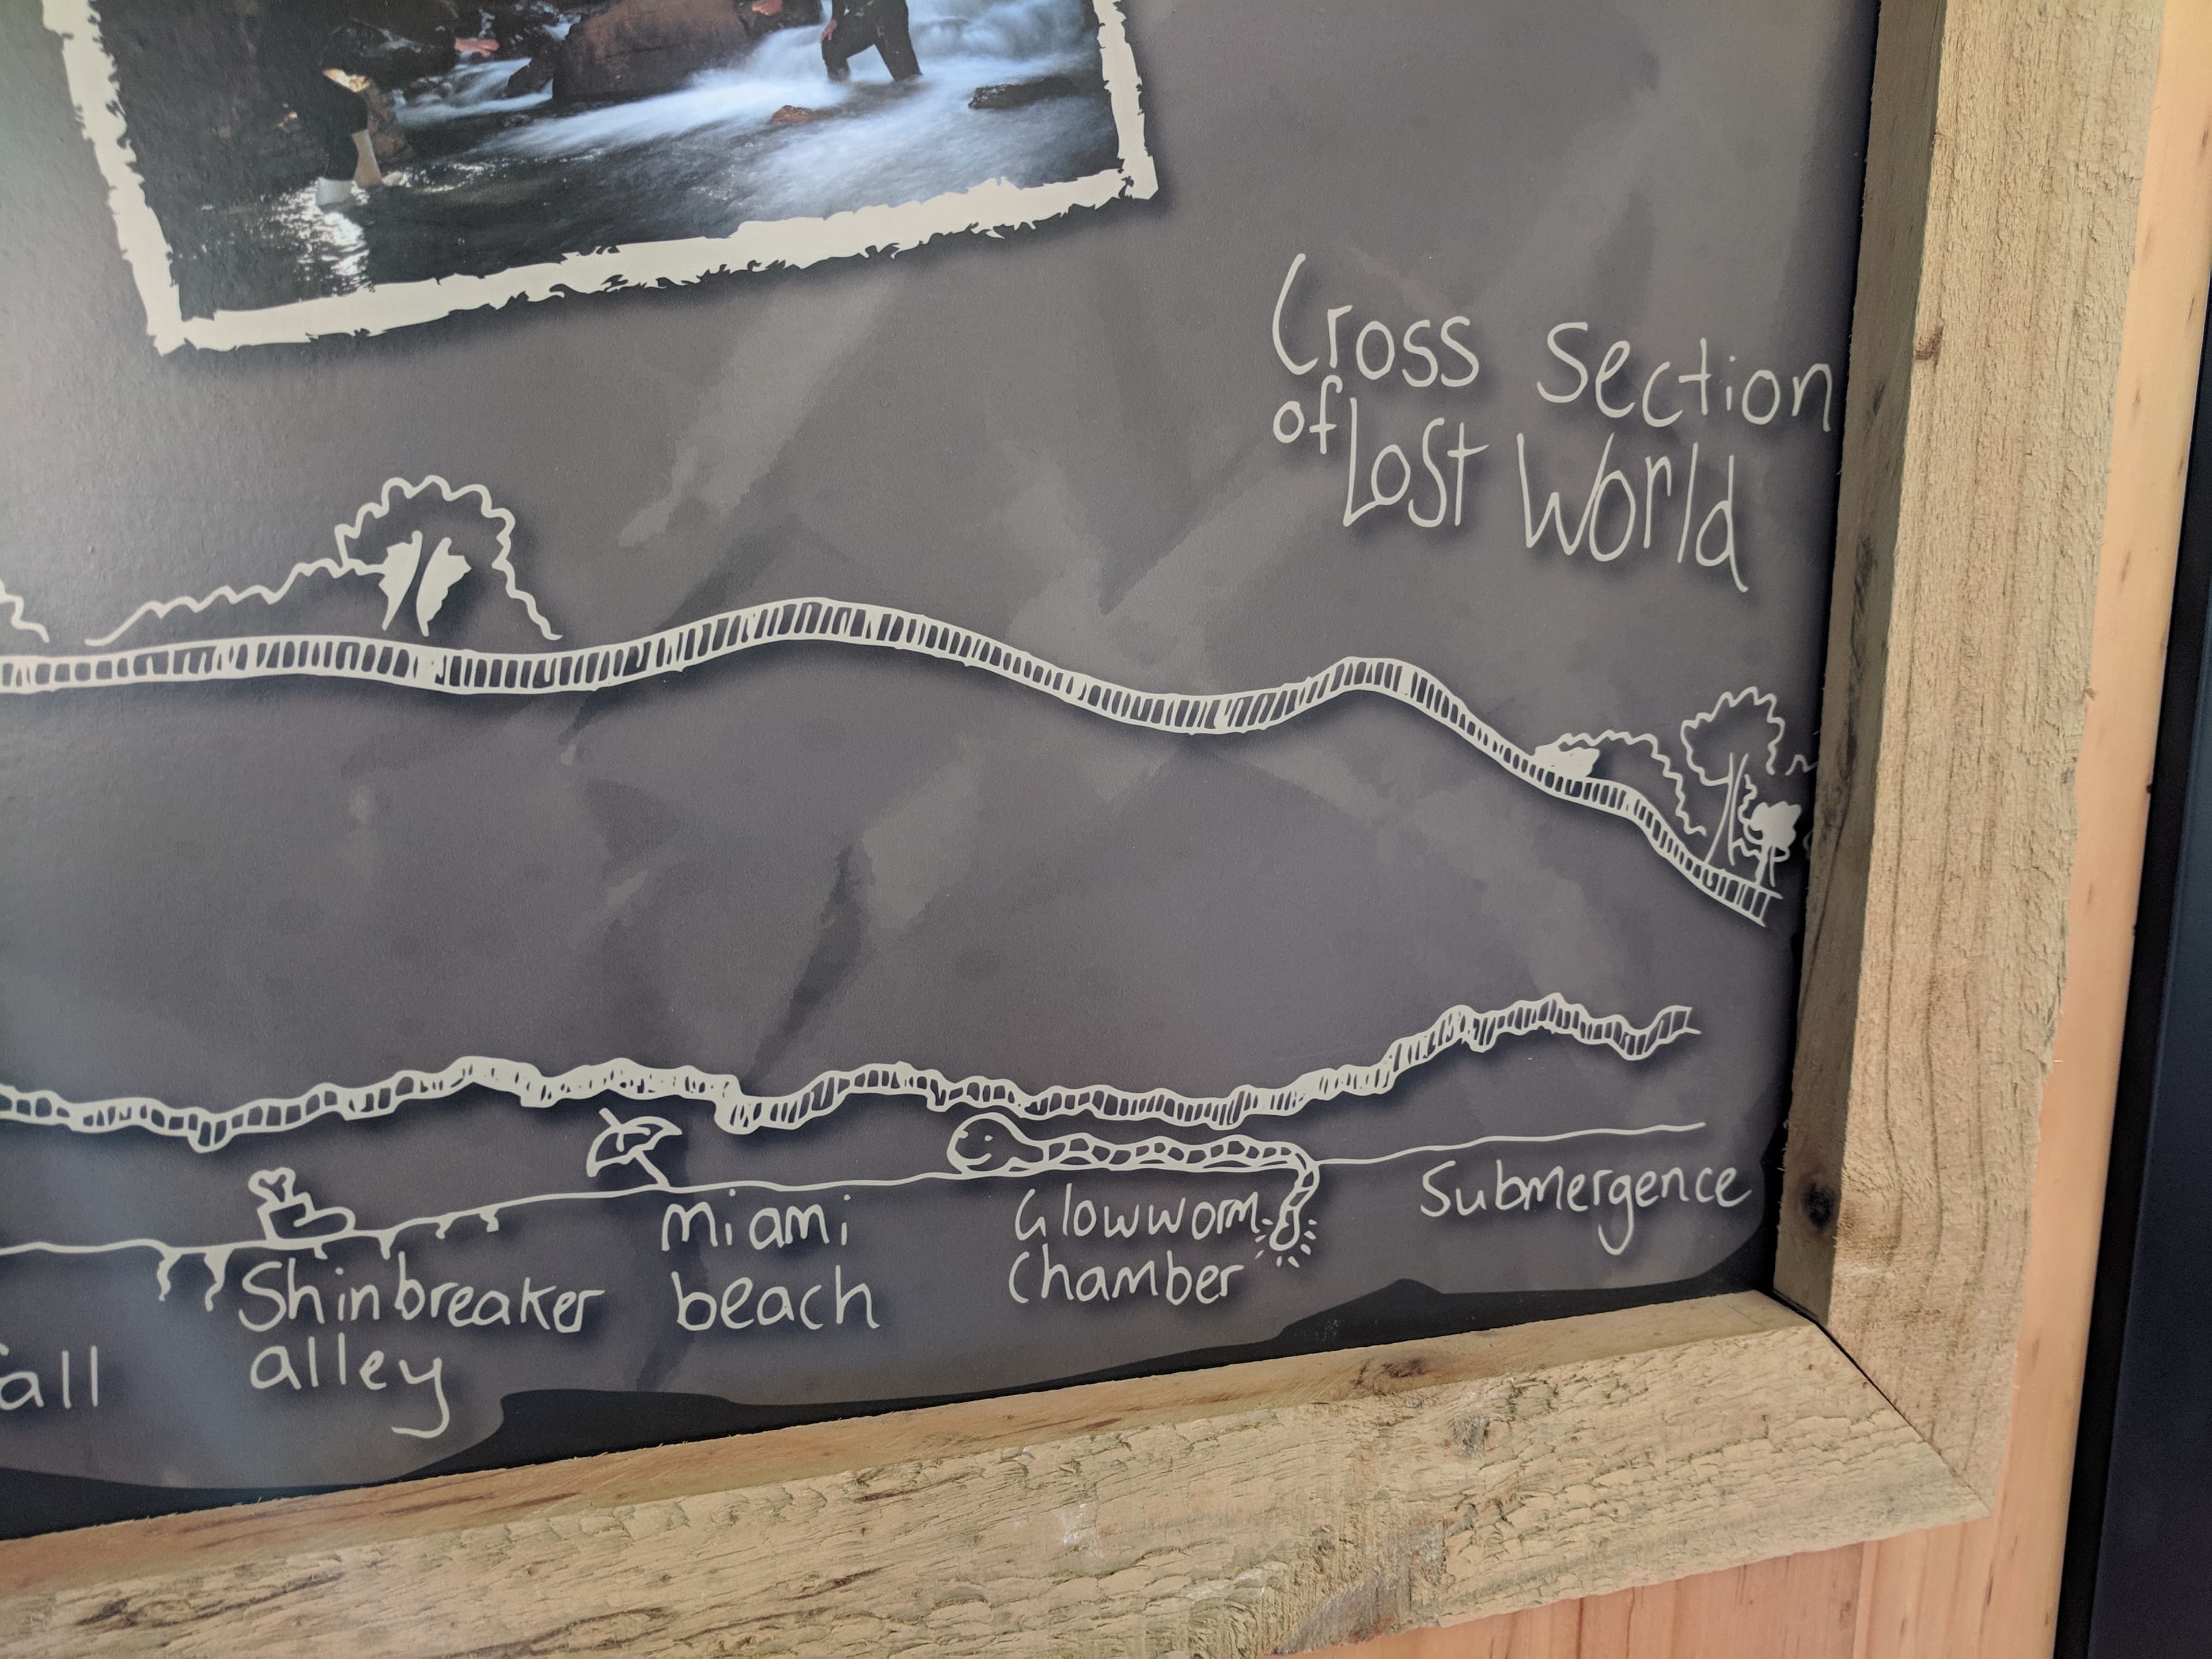 Cross Section
of Lost World
Shinbreaker
alley
Miami
beach
Glowworm
Chamber
Submergence